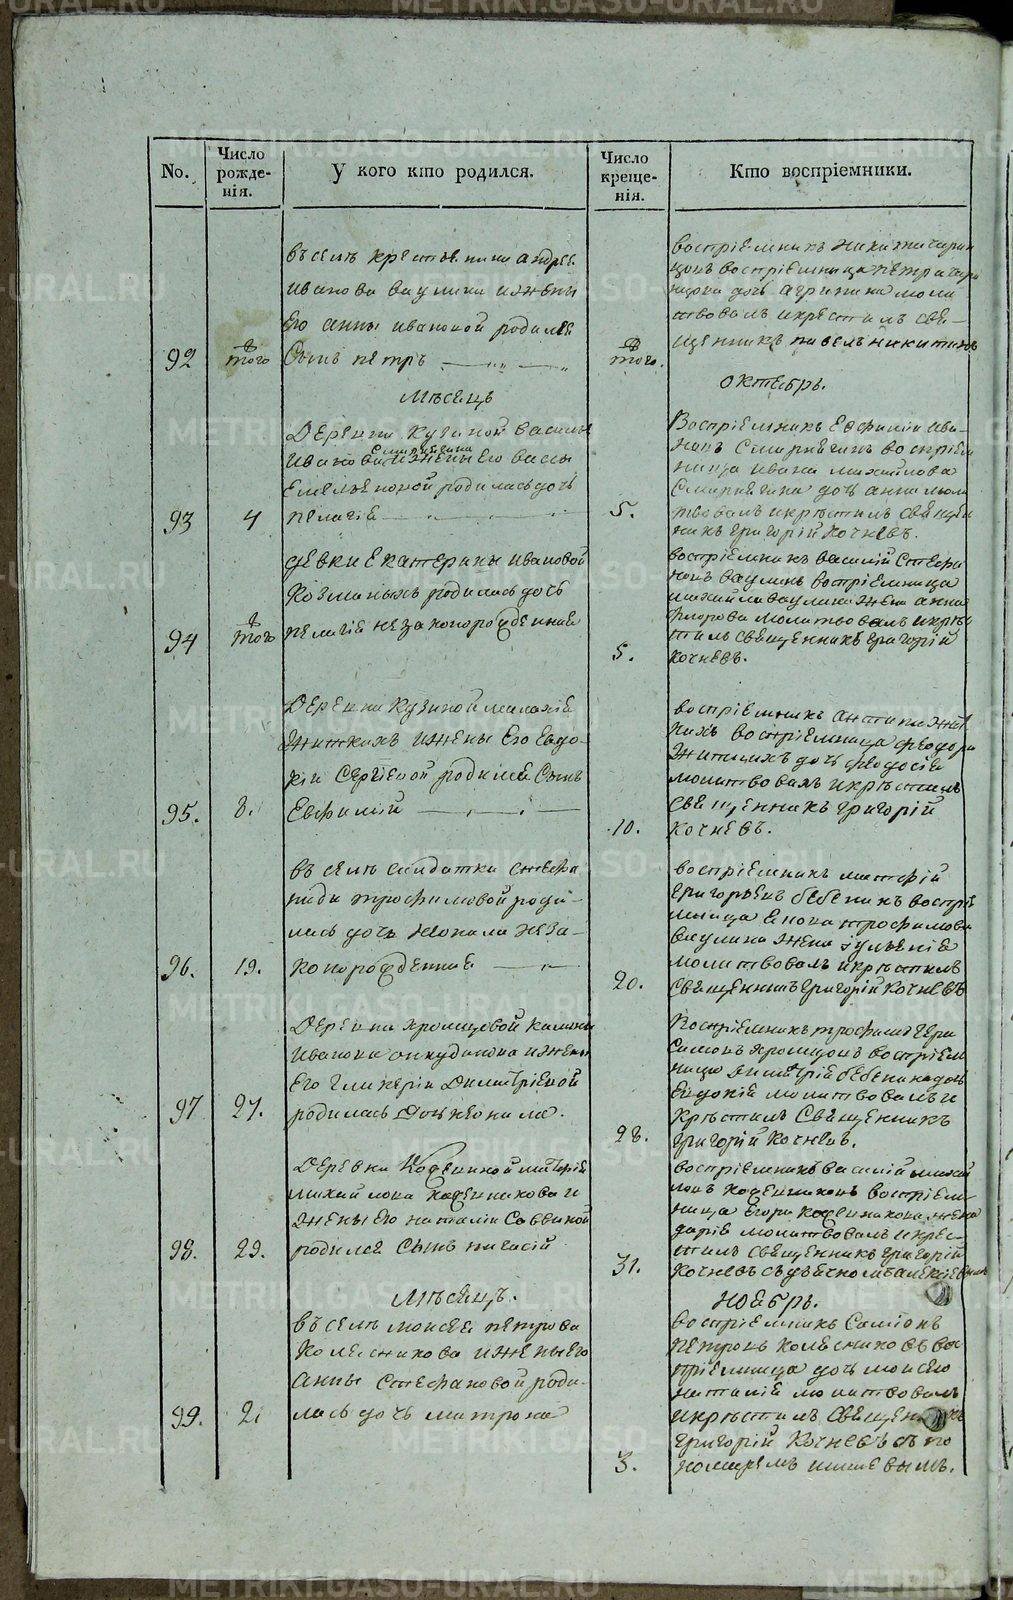 No.
Число рожде-нія.
У кого кто родился.
Число креще-нія.
Кто воспріемники.
въ селѣ крестьянина андрея
иванова ваулина и жены
его анны ивановой родился
92 того сынъ петръ
воспріемникъ
воспріемница петра
дочь агрипина моли
твовалъ и крестилъ свя-
того. щенникъ павелъ никитинъ
Мѣсяцъ
октябрь.
Деревни Кузиной василья
Смирнягина
иванова и жены его вассы
Емельяновой родилась дочь
93 4 пелагія
Воспріемникъ Евфимій ива-
новъ Смирнягинъ воспріем
ница ивана михайлова
Смирнягина дочь анна моли
5. твовалъ и крѣстилъ священ
никъ григорій Кочневъ.
девки екатерины ивановой
Козминыхъ родилась дочь
94 того пелагія незаконорожденная
воспріемникъ василій Стефа
новъ ваулинъ воспріемница
михайла ваулина жена анна
молитвовалъ и крѣ
стилъ священникъ григорій
5. Кочневъ.
Деревни Кузиной малахія
Житкихъ и жены его Евдо-
кіи Сергіевой родился сынъ
95. 8. Евфимій
воспріемникъ антипа жит
кихъ воспріемница феодора
житкихъ дочь феодосія
молитвовалъ и крѣстилъ
священникъ григорій
10. Кочневъ.
въ селѣ солдатки стефа
ниды трофимовой роди-
лась дочь неза-
96. 19. конорожденная
воспріемникъ матфій
григорьевъ бебенинъ воспріе
мница трофимова
ваулина жена
молитвовалъ и крѣстилъ
20. священникъ григорій Кочневъ
Деревни хромцовой
иванова и жены
его гликеріи Димитріевой
97 27. родилась дочь неонила.
Воспріемникъ трофимъ гера
симовъ хромцовъ воспріем
ница Димитрія бебенина дочь
Евдокія молитвовалъ и
крѣстилъ священникъ
28. григорій Кочневъ.
Деревни
михайлова и
жены его наталіи Саввиной
98. 29. родился сынъ
воспріемникъ василій михай
ловъ воспріем-
ница Егора жена
дарія молитвовалъ и крес-
тилъ священникъ григорій
31. Кочневъ
Мѣсяцъ.
ноябрь.
въ селѣ моисея петрова
Колесникова и жены его
анны Стефановой роди-
99. 2. лась дочь матрона
воспріемникъ Симіонъ
петровъ Колесниковъ вос
пріемница дочь моисея
наталія молитвовалъ
и крѣстилъ священникъ
григорій Кочневъ съ по
3. номаремъ
METRIKI.GASO-URAL.RU